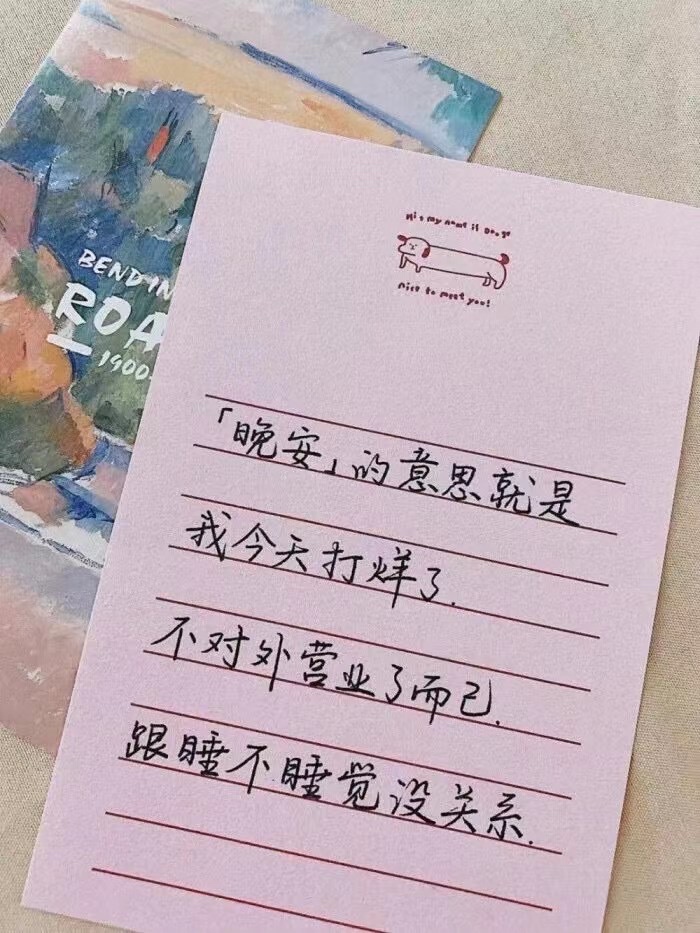 BENDIN
ROA
1900
Hi, my name is Doogo
nice to meet you!
「晚安」的意思就是
我今天打烊了.
不对外营业了而已.
跟睡不睡觉没关系.